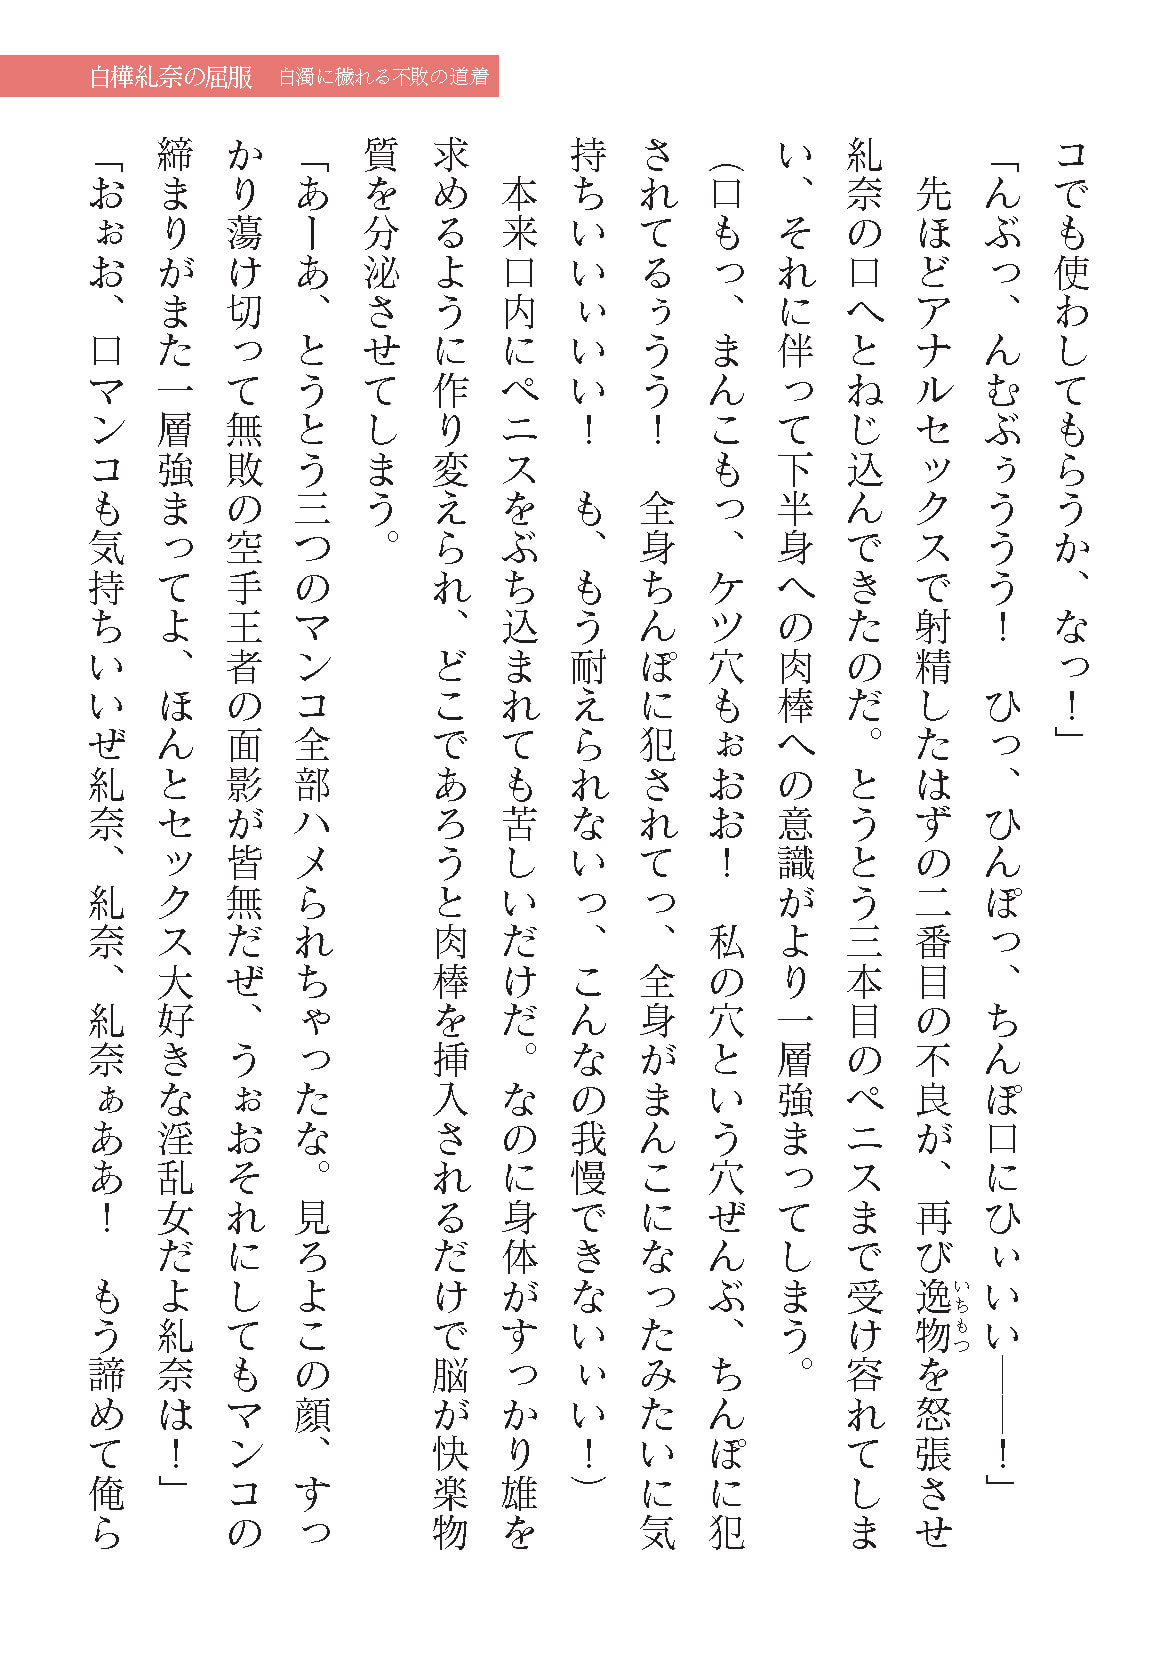 白樺糺奈の屈服　白濁に穢れる不敗の道着
コでも使わしてもらうか、なっ！」
「んぶっ、んむぶぅううう！　ひっ、ひんぽっ、ちんぽ口にひぃいい――！」
　先ほどアナルセックスで射精したはずの二番目の不良が、再び逸物いちもつを怒張させ
糺奈の口へとねじ込んできたのだ。とうとう三本目のペニスまで受け容れてしま
い、それに伴って下半身への肉棒への意識がより一層強まってしまう。
（口もっ、まんこもっ、ケツ穴もぉおお！　私の穴という穴ぜんぶ、ちんぽに犯
されてるぅうう！　全身ちんぽに犯されてっ、全身がまんこになったみたいに気
持ちいいぃいい！　も、もう耐えられないっ、こんなの我慢できないぃい！）
　本来口内にペニスをぶち込まれても苦しいだけだ。なのに身体がすっかり雄を
求めるように作り変えられ、どこであろうと肉棒を挿入されるだけで脳が快楽物
質を分泌させてしまう。
「あーあ、とうとう三つのマンコ全部ハメられちゃったな。見ろよこの顔、すっ
かり蕩け切って無敗の空手王者の面影が皆無だぜ、うぉおそれにしてもマンコの
締まりがまた一層強まってよ、ほんとセックス大好きな淫乱女だよ糺奈は！」
「おぉお、口マンコも気持ちいいぜ糺奈、糺奈、糺奈ぁああ！　もう諦めて俺ら